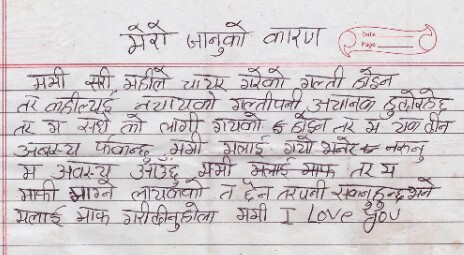 मेरो जानुको कारण
Date
Page
ममी सरी महीले चाएर गरेको गल्ती होईन
तर कहील्यई नचाएको गल्तीपनी अचानक हुँदोरहेछ
तर म सधैं को लागी गएको होईन तर म एक दीन
अवस्य फर्कन्छु ममी मलाई गयो भनेर नरुनु
म अवस्य आँउछु ममी मलाई माफ तर म
माफी माग्ने लायकको त छैन तरपनी सक्नुहुन्छ भने
मलाई माफ गरीदीनुहोला ममी I Love You